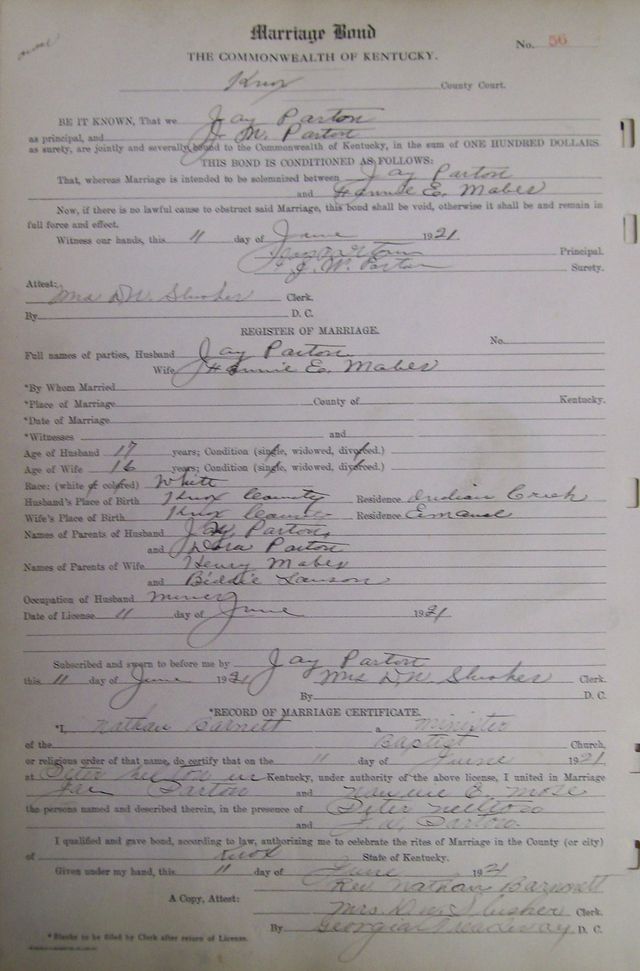 Marriage Bond
No. 56
THE COMMONWEALTH OF KENTUCKY.
Knox County Court.
BE IT KNOWN, That we Jay Parton
as principal, and J. W. Parton
as surety, are jointly and severally bound to the Commonwealth of Kentucky, in the sum of ONE HUNDRED DOLLARS
THIS BOND IS CONDITIONED AS FOLLOWS:
That, whereas Marriage is intended to be solemnized between Jay Parton
and Hannie E. Mabes
Now, if there is no lawful cause to obstruct said Marriage, this bond shall be void, otherwise it shall be and remain in
full force and effect.
Witness our hands, this 11 day of June 1921
Principal.
J. W. Parton Surety.
Attest:
Mrs D. W. Slusher Clerk.
By D. C.
REGISTER OF MARRIAGE.
No.
Full names of parties, Husband Jay Parton
Wife Hannie E. Mabes
*By Whom Married
*Place of Marriage County of Kentucky.
*Date of Marriage
*Witnesses and
Age of Husband 17 years; Condition (single, widowed, divorced.)
Age of Wife 16 years; Condition (single, widowed, divorced.)
Race: (white or colored) White
Husband's Place of Birth Knox County Residence Indian Creek
Wife's Place of Birth Knox County Residence Emanuel
Names of Parents of Husband Parton
and Dora Parton
Names of Parents of Wife Henry Mabes
and Biddie Lawson
Occupation of Husband Miner
Date of License 11 day of June 1921
Subscribed and sworn to before me by Jay Parton
this 11 day of June 1921 Mrs D. W. Slusher Clerk.
By D. C.
*RECORD OF MARRIAGE CERTIFICATE.
*I, Nathan Barnett a minister
of the Baptist Church,
or religious order of that name, do certify that on the day of June 1921
at Peter Kentucky, under authority of the above license, I united in Marriage
Parton and Nannie E. Mose
the persons named and described therein, in the presence of Peter
and J. W. Parton
I qualified and gave bond, according to law, authorizing me to celebrate the rites of Marriage in the County (or city)
of Knox State of Kentucky.
Given under my hand, this 11 day of June 1921
Rev Nathan Barnett
A Copy, Attest: Mrs. D. W. Slusher Clerk.
By Georgia Treadway D. C.
*Blanks to be filled by Clerk after return of License.